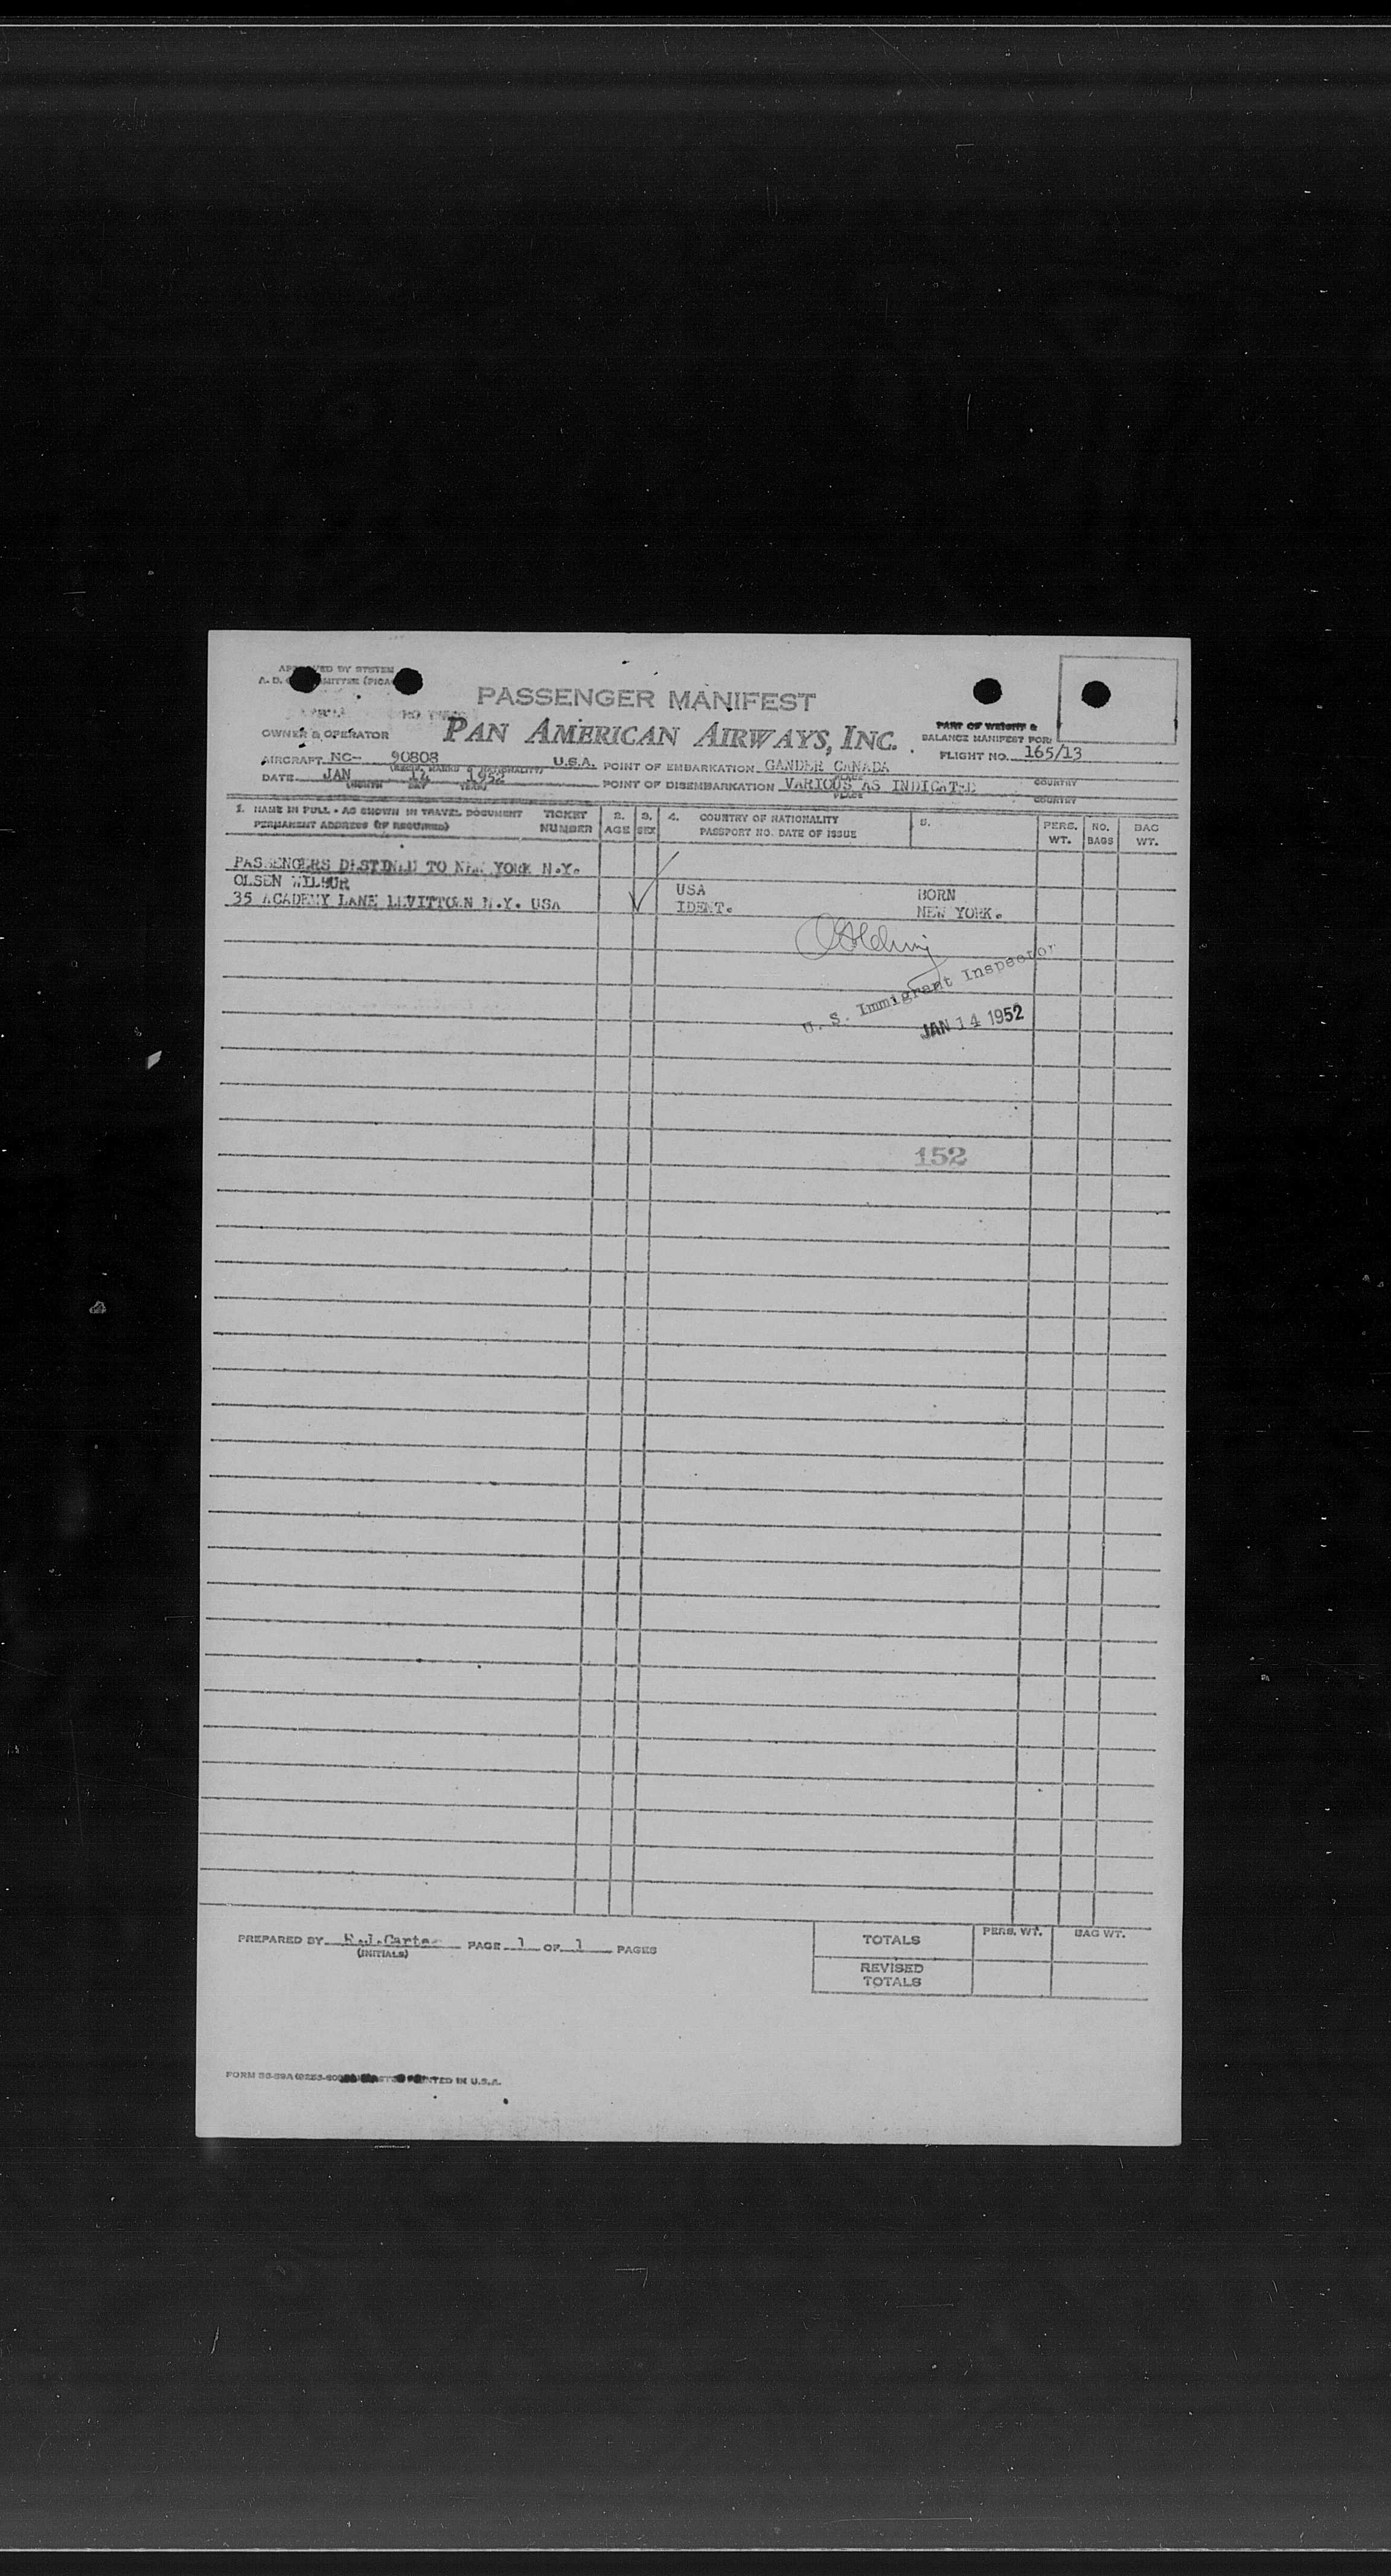 PASSENGER MANIFEST
OWNER & OPERATOR PAN AMERICAN AIRWAYS, INC.
PART OF WEIGHT &
BALANCE MANIFEST FOR:
FLIGHT NO. 165/13
AIRCRAFT NC- 90808 U.S.A. POINT OF EMBARKATION GANDER CANADA
DATE JAN 14 1952 POINT OF DISEMBARKATION VARIOUS AS INDICATED
MONTH DAY YEAR PLACE COUNTRY
1. NAME IN FULL - AS SHOWN IN TRAVEL DOCUMENT TICKET 2. 3. 4. COUNTRY OF NATIONALITY 5. PERS. NO. BAG
PERMANENT ADDRESS (IF REQUIRED) NUMBER AGE SEX PASSPORT NO. DATE OF ISSUE WT. BAGS WT.
PASSENGERS DESTINED TO NEW YORK N.Y.
OLSEN WILBUR USA BORN
35 ACADEMY LANE LEVITTOWN N.Y. USA IDENT. NEW YORK.
U. S. Immigrant Inspector
JAN 14 1952
152
PREPARED BY PAGE 1 OF 1 PAGES
(INITIALS)
TOTALS PERS. WT. BAG WT.
REVISED
TOTALS
PRINTED IN U.S.A.